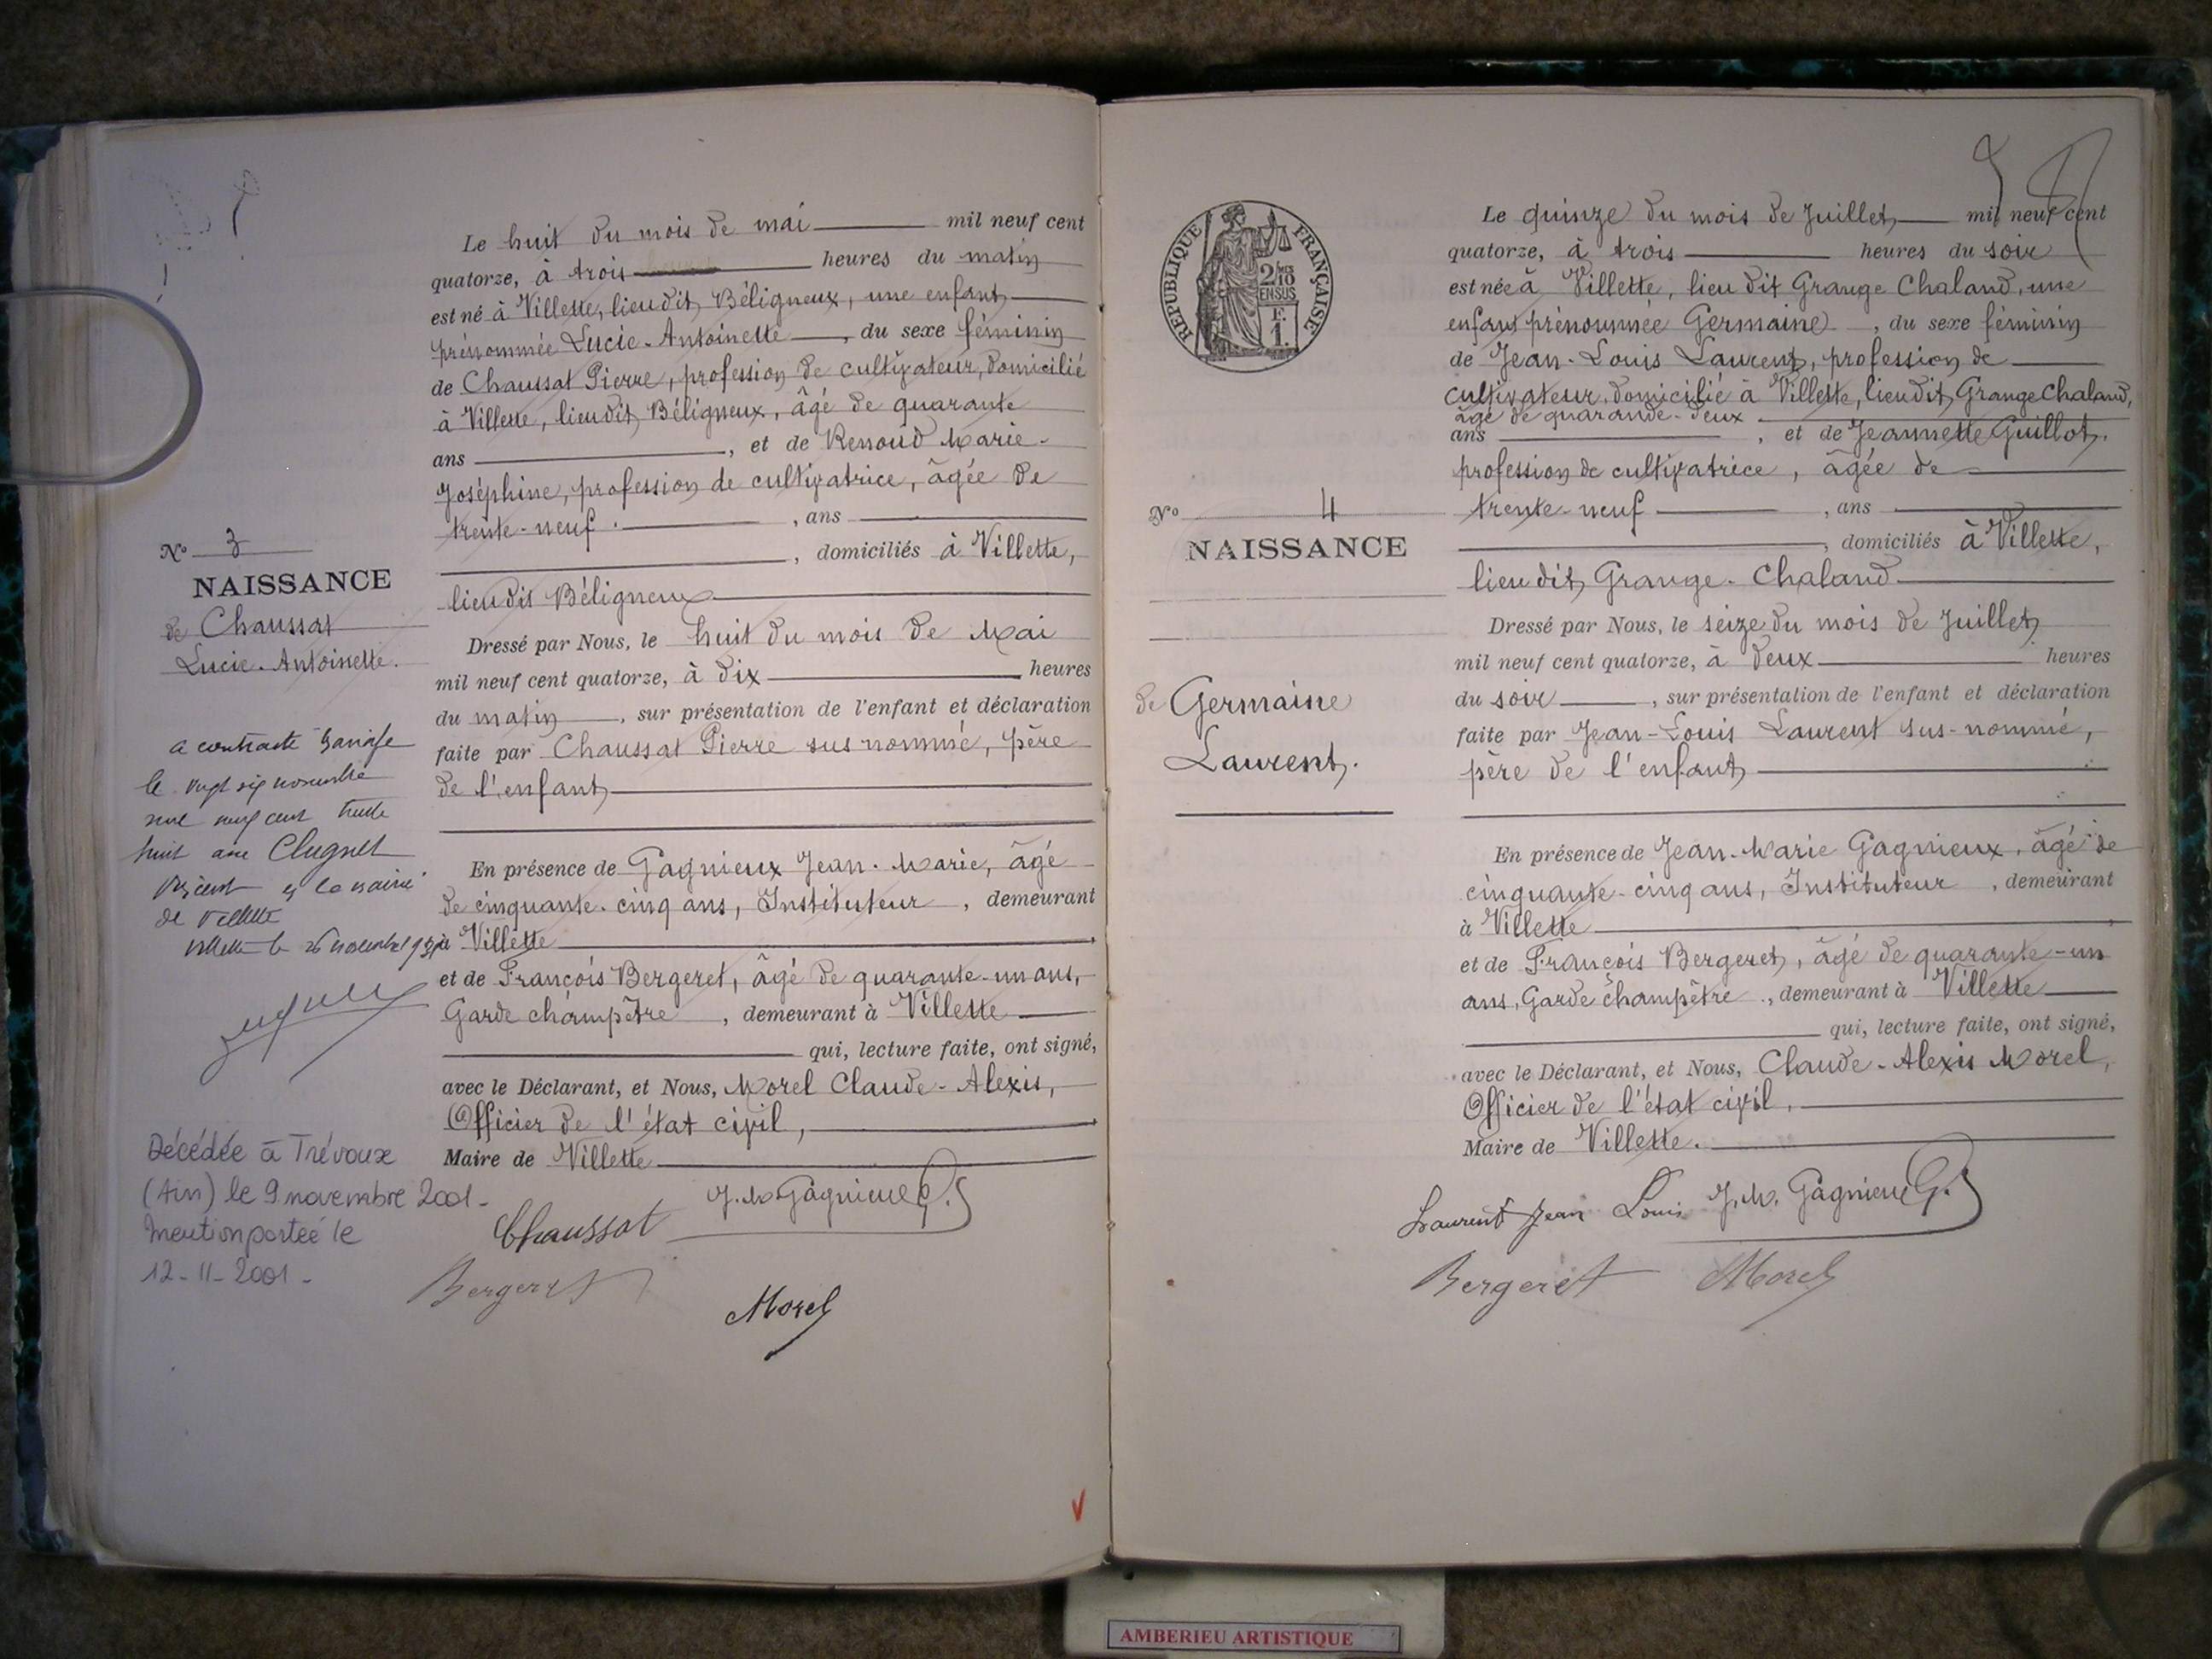 Le huit du mois de mai mil neuf cent
quatorze, à trois heures du matin
est né à Villette, lieu dit Béligneux, une enfant
prénommée Lucie-Antoinette, du sexe féminin
de Chaussat Pierre, profession de cultivateur, domicilié
à Villette, lieu dit Béligneux, âgé de quarante
ans, et de Renoud Marie-
Joséphine, profession de cultivatrice, âgée de
trente-neuf, ans
, domiciliés à Villette,
lieu dit Béligneux
Dressé par Nous, le huit du mois de Mai
mil neuf cent quatorze, à dix heures
du matin, sur présentation de l'enfant et déclaration
faite par Chaussat Pierre sus nommé, père
de l'enfant
En présence de Gagnieux Jean-Marie, âgé
de cinquante-cinq ans, Instituteur, demeurant
à Villette
et de François Bergeret, âgé de quarante-un ans,
Garde champêtre, demeurant à Villette
qui, lecture faite, ont signé,
avec le Déclarant, et Nous, Morel Claude-Alexis,
Officier de l'état civil,
Maire de Villette
Chaussat J.M. Gagnieux
Bergeret
Morel
No 3
NAISSANCE
de Chaussat
Lucie-Antoinette.
a contracté mariage
le vingt six novembre
mil neuf cent trente
huit avec Clugnet
Vincent à la mairie
de Villette
Villette le 26 novembre
Décédée à Trévoux
(Ain) le 9 novembre 2001-
Mention portée le
12-11-2001-
RÉPUBLIQUE FRANÇAISE
2/10
EN SUS
F.
1.
No 4
NAISSANCE
de Germaine
Laurent.
Le quinze du mois de Juillet mil neuf cent
quatorze, à trois heures du soir
est née à Villette, lieu dit Grange Chaland, une
enfant prénommée Germaine, du sexe féminin
de Jean-Louis Laurent, profession de
cultivateur, domicilié à Villette, lieu dit Grange Chaland,
âgé de quarande-deux
ans, et de Jeannette Guillot,
profession de cultivatrice, âgée de
trente-neuf, ans
, domiciliés à Villette,
lieu dit Grange-Chaland
Dressé par Nous, le seize du mois de Juillet
mil neuf cent quatorze, à deux heures
du soir, sur présentation de l'enfant et déclaration
faite par Jean-Louis Laurent sus-nommé,
père de l'enfant
En présence de Jean-Marie Gagnieux, âgé de
cinquante-cinq ans, Instituteur, demeurant
à Villette
et de François Bergeret, âgé de quarante-un
ans, Garde champêtre, demeurant à Villette
qui, lecture faite, ont signé,
avec le Déclarant, et Nous, Claude-Alexis Morel,
Officier de l'état civil.
Maire de Villette.
Laurent Jean Louis J.M. Gagnieux
Bergeret Morel
AMBERIEU ARTISTIQUE